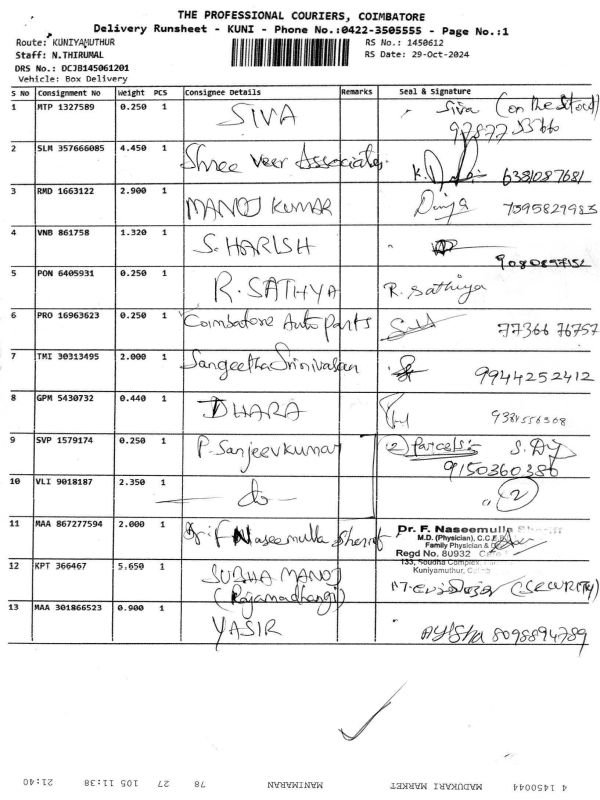 THE PROFESSIONAL COURIERS, COIMBATORE
Delivery Runsheet - KUNI - Phone No.:0422-3505555 - Page No.:1
Route: KUNIYAMUTHUR RS No.: 1450612
Staff: N.THIRUMAL RS Date: 29-Oct-2024
DRS No.: DCJB145061201
Vehicle: Box Delivery
S No Consignment No Weight PCS Consignee Details Remarks Seal & Signature
1 MTP 1327589 0.250 1 SIVA Siva (on the
2 SLM 357666085 4.450 1 Shree Veer Associates. 6381087681
3 RMD 1663122 2.900 1 MANOJ KUMAR 7395829983
4 VNB 861758 1.320 1 S. HARISH
5 PON 6405931 0.250 1 R. SATHYA R. Sathiya
6 PRO 16963623 0.250 1 Coimbatore Auto Parts 77366 76757
7 TMI 30313495 2.000 1 Sangeetha Srinivasan 9944252412
8 GPM 5430732 0.440 1 DHARA 9384556308
9 SVP 1579174 0.250 1 P. Sanjeevkumar (2) Parcels:-
9150360380
10 VLI 9018187 2.350 1 do (2)
11 MAA 867277594 2.000 1 Dr. F Naseemulla Sheriff Dr. F. Naseemulla Sheriff
M.D. (Physician),
Family Physician &
Regd No. 80932
133, Soudha Complex,
Kuniyamuthur,
12 KPT 366467 5.650 1 SUBHA MANOJ (SECURITY)
13 MAA 301866523 0.900 1 YASIR Ayisha 8098894789
4 1450044 MADUKARI MARKET MANIMARAN 78 27 105 11:38 21:40